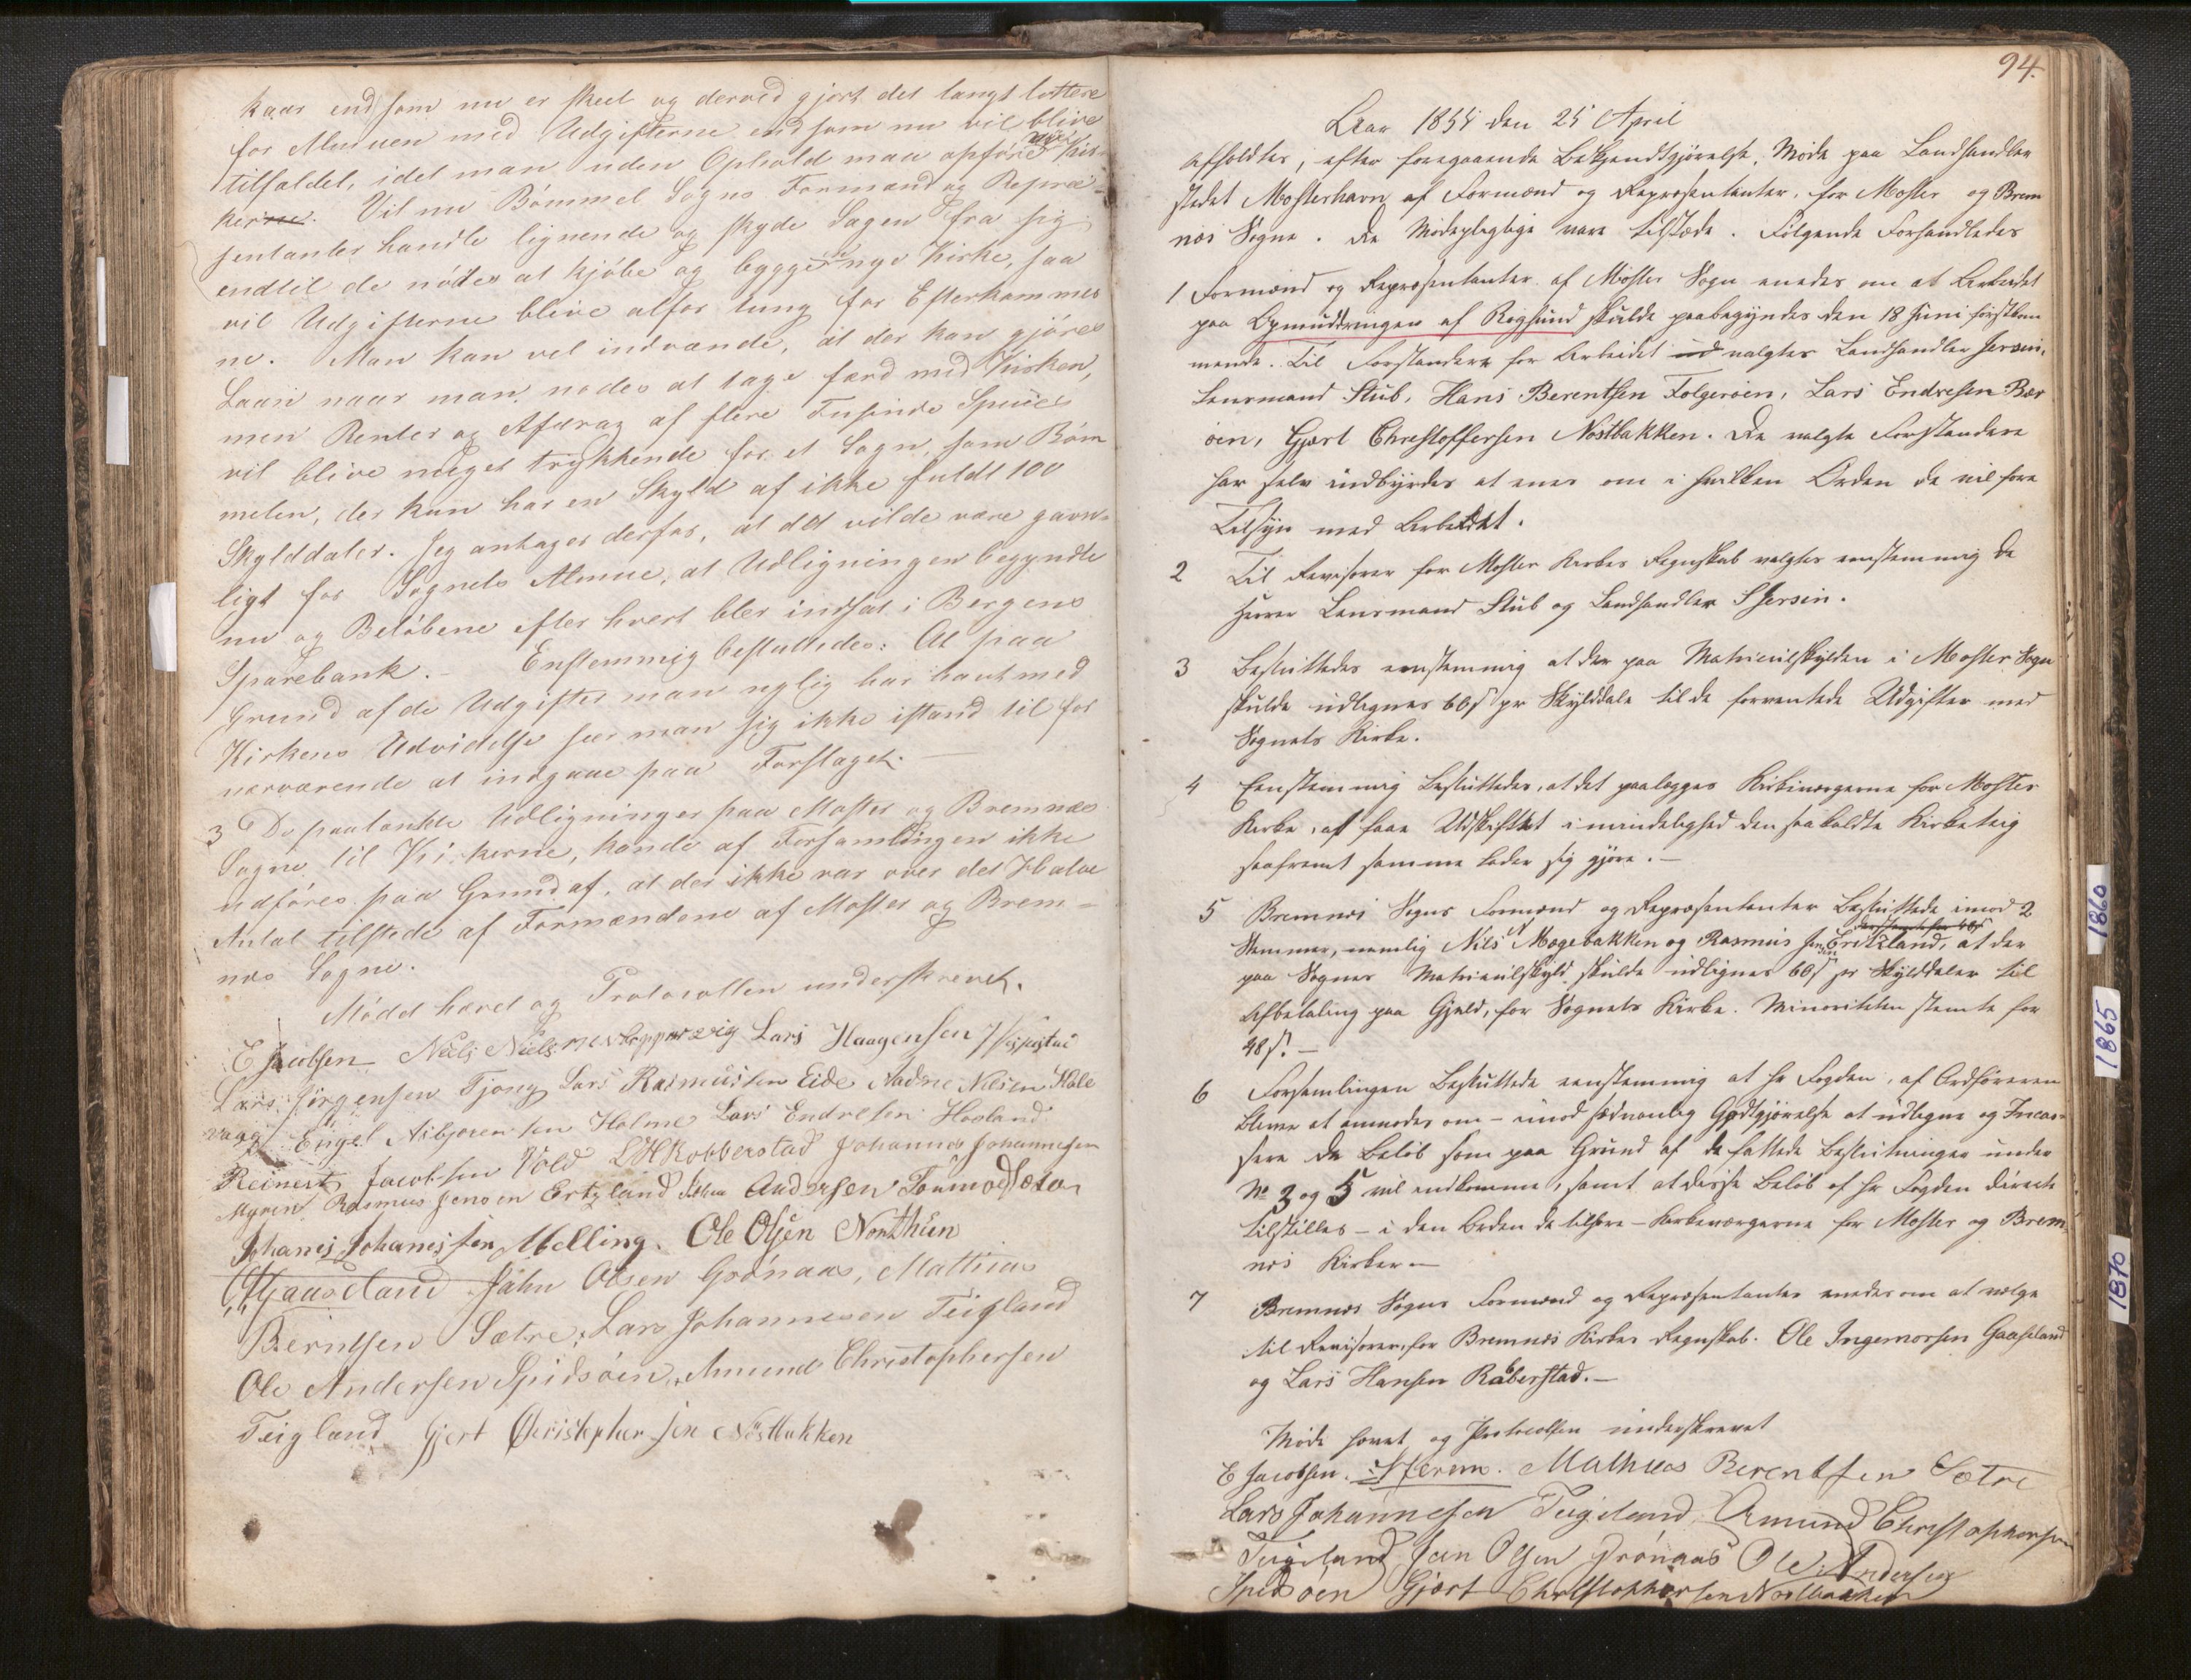 kaar end som nu er skeet og derved gjort det langt lettere
for Almuen med Udgifterne end som nu vil blive
tilfældet, idet man uden Ophold maa opføre nye Kir-
kerne. Vil nu Bømmel Sogns Formænd og Repræ-
sentanter handle lignende og skyde Sagen fra sig
endtil de nødes at kjøbe og bygge nye Kirke, saa
vil Udgifterne blive alfor tung for Efterkommer
ne. Man kan vel indvende, at der kan gjøres
Laan naar man nødes at tage færd med Kirken,
men Renter og Afdrag af flere Tusinde Species
vil blive meget trykkende for et Sogn, som Bøm
melen, der kun har en Skyld af ikke fuldt 100
Skylddaler. Jeg antager derfor, at det vilde være gavn-
ligt for Sognets Almue, at Udligningen begyndte
nu og Beløbene efter hvert blev indsat i Bergens
Sparebank. - Enstemmig besluttedes: At paa
Grund af de Udgifter man nylig har havt med
Kirkens Udvidelse seer man sig ikke istand til for
nærværende at indgaae paa Forslaget. -
3 De paatænkte Udligninger paa Moster og Bremnæs
Sogne til Kirkerne, kunde af Forsamlingen ikke
udføres paa Grund af, at der ikke var over det Halve
Antal tilstede af Formændene af Moster og Brem-
næs Sogne.
Mødet hævet og Protocollen underskrevet.
E Jacobsen Niels Nielsen Lars Haagensen
Lars Jørgensen Tjong Lars Rasmussen Eide Aadne Nilsen Hale
vaag Engel Asbjørensen Holme Lars Endresen Hovland
Reinert Jacobsen Vold LHRobberstad Johannes Johannesen
Myren Rasmus Jensen Ertzland Andersen
Johanes Johanesen Melling. Ole Olsen Northun
Gaaseland John Olsen Grønaas, Mathias
Berntsen Sætre, Lars Johannesen Teigland
Ole Andersen Spidsøen, Amund Christophersen
Teigland Gjert Christophersen Nøstbakken
94.
Aar 1855 den 25 April
afholdtes, efter foregaaende Bekjendtgjørelse, Møde paa Landhandler
stedet Mosterhavn af Formænd og Repræsentanter for Moster og Brem
næs Sogne. De Mødepligtige vare tilstede. Følgende Forhandledes
1 Formænd og Repræsentanter af Moster Sogn enedes om at Arbeidet
paa Opmuddringen af Røgsund skulde paabegyndes den 18 Juni førstkom
mende. Til Forstandere for Arbeidet ud valgtes Landhandler Jersin,
Lensmand Stub, Hans Berentsen Folgerøen, Lars Endresen Bær
øen, Gjert Christoffersen Nøstbakken. De valgte Forstandere
har selv indbyrdes at enes om i hvilken Orden de vil føre
Tilsyn med Arbeidet.
2 Til Revisorer for Moster Kirkes Regnskab valgtes eenstemmig de
Herrer Lensmand Stub og Landhandler Jersin.
3 Besluttedes eenstemmig at der paa Matriculskylden i Moster Sogn
skulde udlignes 60s pr Skylddaler til de forventede Udgifter med
Sognets Kirke.
4 Eenstemmig besluttedes, at det paalægges Kirkeværgerne for Moster
Kirke, at faae Udskiftet i mindelighed den saakaldte Kirketeig
saafremt samme lader sig gjøre. -
5 Bremnæs Sogns Formænd og Repræsentanter besluttede imod 2
Stemmer, nemlig Nils Møgebakken og Rasmus Jensen Ertzland, at der
paa Sognes Matriculskyld skulde udlignes 60s pr Skylddaler til
Afbetaling paa Gjeld, for Sognets Kirke. Minoriteten stemte for
48s. -
6 Forsamlingen besluttede eenstemmig at Hr Fogden, af Ordføreren
bliver at anmodes om - imod sædvanlig Godtgjørelse at udligne og Incas-
sere de Beløb som paa Grund af de fattede Beslutninger under
No 3 og 5 vil indkomme, samt at disse Beløb af Hr Fogden directe
tilstilles - i den Orden de tilhøre - Kirkeværgerne for Moster og Brem
næs Kirker -
7 Bremnæs Sogns Formænd og Repræsentanter enedes om at vælge
til Revisorer, for Bremnæs Kirkes Regnskab. Ole Ingemorsen Gaaseland
og Lars Hansen Robberstad. -
Møde hævet og Protocollen underskrevet
E Jacobsen. Mathias Berentsen Sætre
Lars Johannesen Teigeland, Amund Christophersen
Teigeland Jon Olsen Grønaas Ole Andersen
Spidsøen Gjert Christophersen Nøstbakken
1860
1865
1870